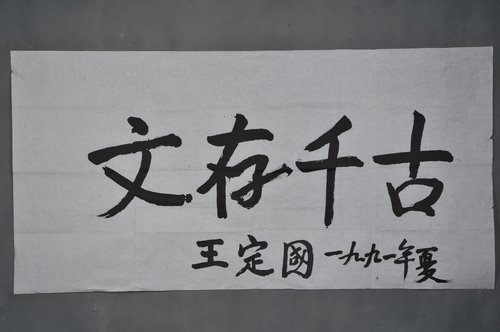 文存千古
王定國 一九九一年夏